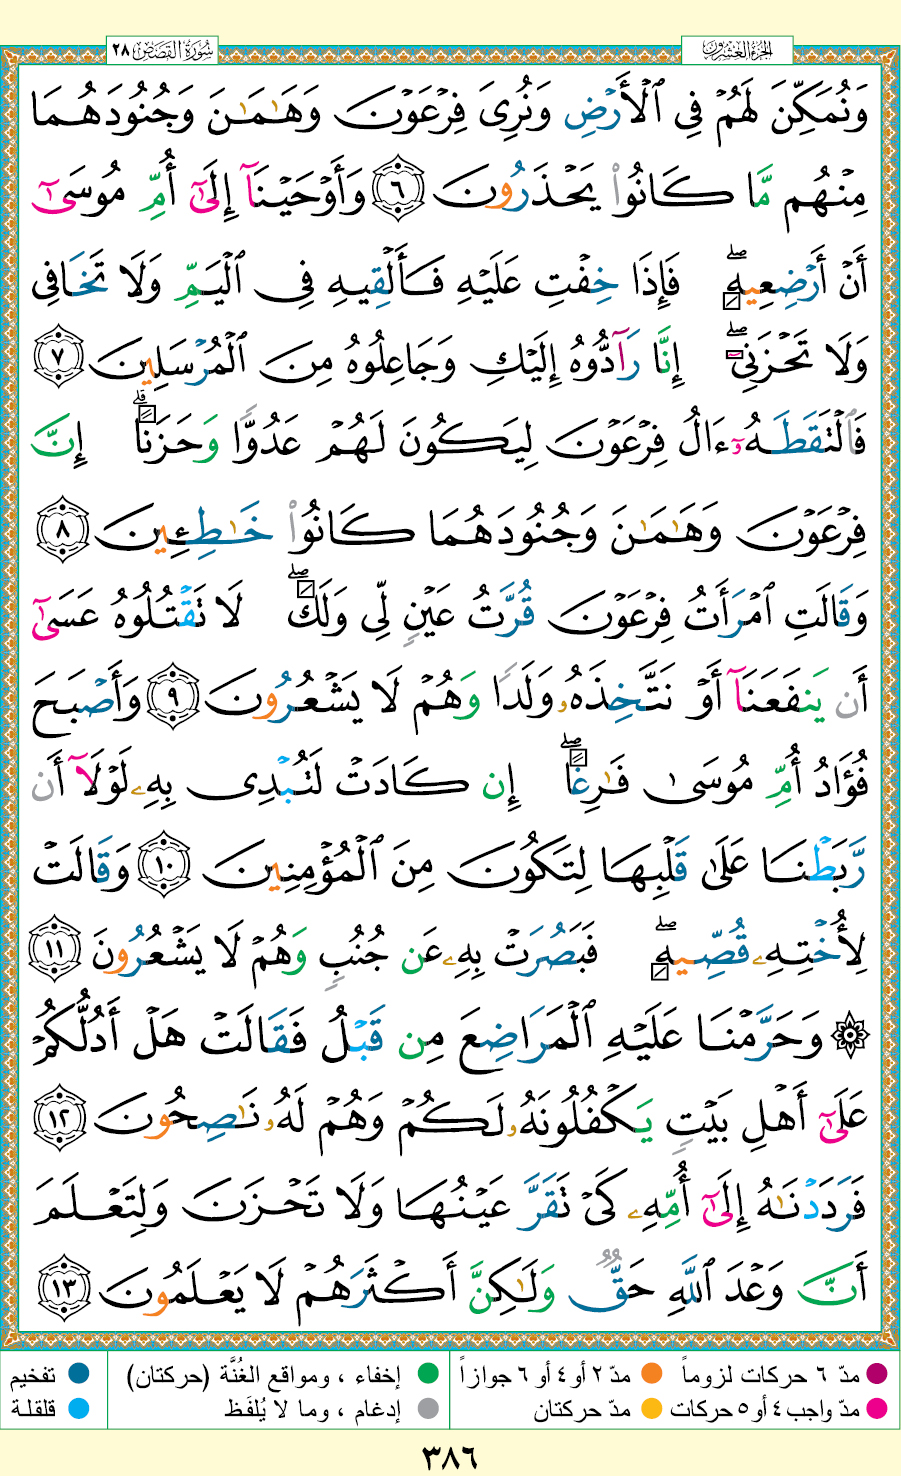 الجزء العشرون
سورة القصص ٢٨
وَنُمَكِّنَ لَهُمْ فِي ٱلْأَرْضِ وَنُرِيَ فِرْعَوْنَ وَهَـٰمَـٰنَ وَجُنُودَهُمَا
مِنْهُم مَّا كَانُوا۟ يَحْذَرُونَ ٦ وَأَوْحَيْنَآ إِلَىٰٓ أُمِّ مُوسَىٰٓ
أَنْ أَرْضِعِيهِ ۖ فَإِذَا خِفْتِ عَلَيْهِ فَأَلْقِيهِ فِي ٱلْيَمِّ وَلَا تَخَافِي
وَلَا تَحْزَنِيٓ ۖ إِنَّا رَآدُّوهُ إِلَيْكِ وَجَاعِلُوهُ مِنَ ٱلْمُرْسَلِينَ ٧
فَٱلْتَقَطَهُۥٓ ءَالُ فِرْعَوْنَ لِيَكُونَ لَهُمْ عَدُوًّا وَحَزَنًا ۗ إِنَّ
فِرْعَوْنَ وَهَـٰمَـٰنَ وَجُنُودَهُمَا كَانُوا۟ خَـٰطِـِٔينَ ٨
وَقَالَتِ ٱمْرَأَتُ فِرْعَوْنَ قُرَّتُ عَيْنٍ لِّي وَلَكَ ۖ لَا تَقْتُلُوهُ عَسَىٰٓ
أَن يَنفَعَنَآ أَوْ نَتَّخِذَهُۥ وَلَدًا وَهُمْ لَا يَشْعُرُونَ ٩ وَأَصْبَحَ
فُؤَادُ أُمِّ مُوسَىٰ فَـٰرِغًا ۖ إِن كَادَتْ لَتُبْدِي بِهِۦ لَوْلَآ أَن
رَّبَطْنَا عَلَىٰ قَلْبِهَا لِتَكُونَ مِنَ ٱلْمُؤْمِنِينَ ١٠ وَقَالَتْ
لِأُخْتِهِۦ قُصِّيهِ ۖ فَبَصُرَتْ بِهِۦ عَن جُنُبٍ وَهُمْ لَا يَشْعُرُونَ ١١
۞ وَحَرَّمْنَا عَلَيْهِ ٱلْمَرَاضِعَ مِن قَبْلُ فَقَالَتْ هَلْ أَدُلُّكُمْ
عَلَىٰٓ أَهْلِ بَيْتٍ يَكْفُلُونَهُۥ لَكُمْ وَهُمْ لَهُۥ نَـٰصِحُونَ ١٢
فَرَدَدْنَـٰهُ إِلَىٰٓ أُمِّهِۦ كَيْ تَقَرَّ عَيْنُهَا وَلَا تَحْزَنَ وَلِتَعْلَمَ
أَنَّ وَعْدَ ٱللَّهِ حَقٌّ وَلَـٰكِنَّ أَكْثَرَهُمْ لَا يَعْلَمُونَ ١٣
مدّ ٦ حركات لزوماً
مدّ ٢ أو ٤ أو ٦ جوازاً
إخفاء ، ومواقع الغُنَّة (حركتان)
تفخيم
مدّ واجب ٤ أو ٥ حركات
مدّ حركتان
إدغام ، وما لا يُلفَظ
قلقلة
٣٨٦